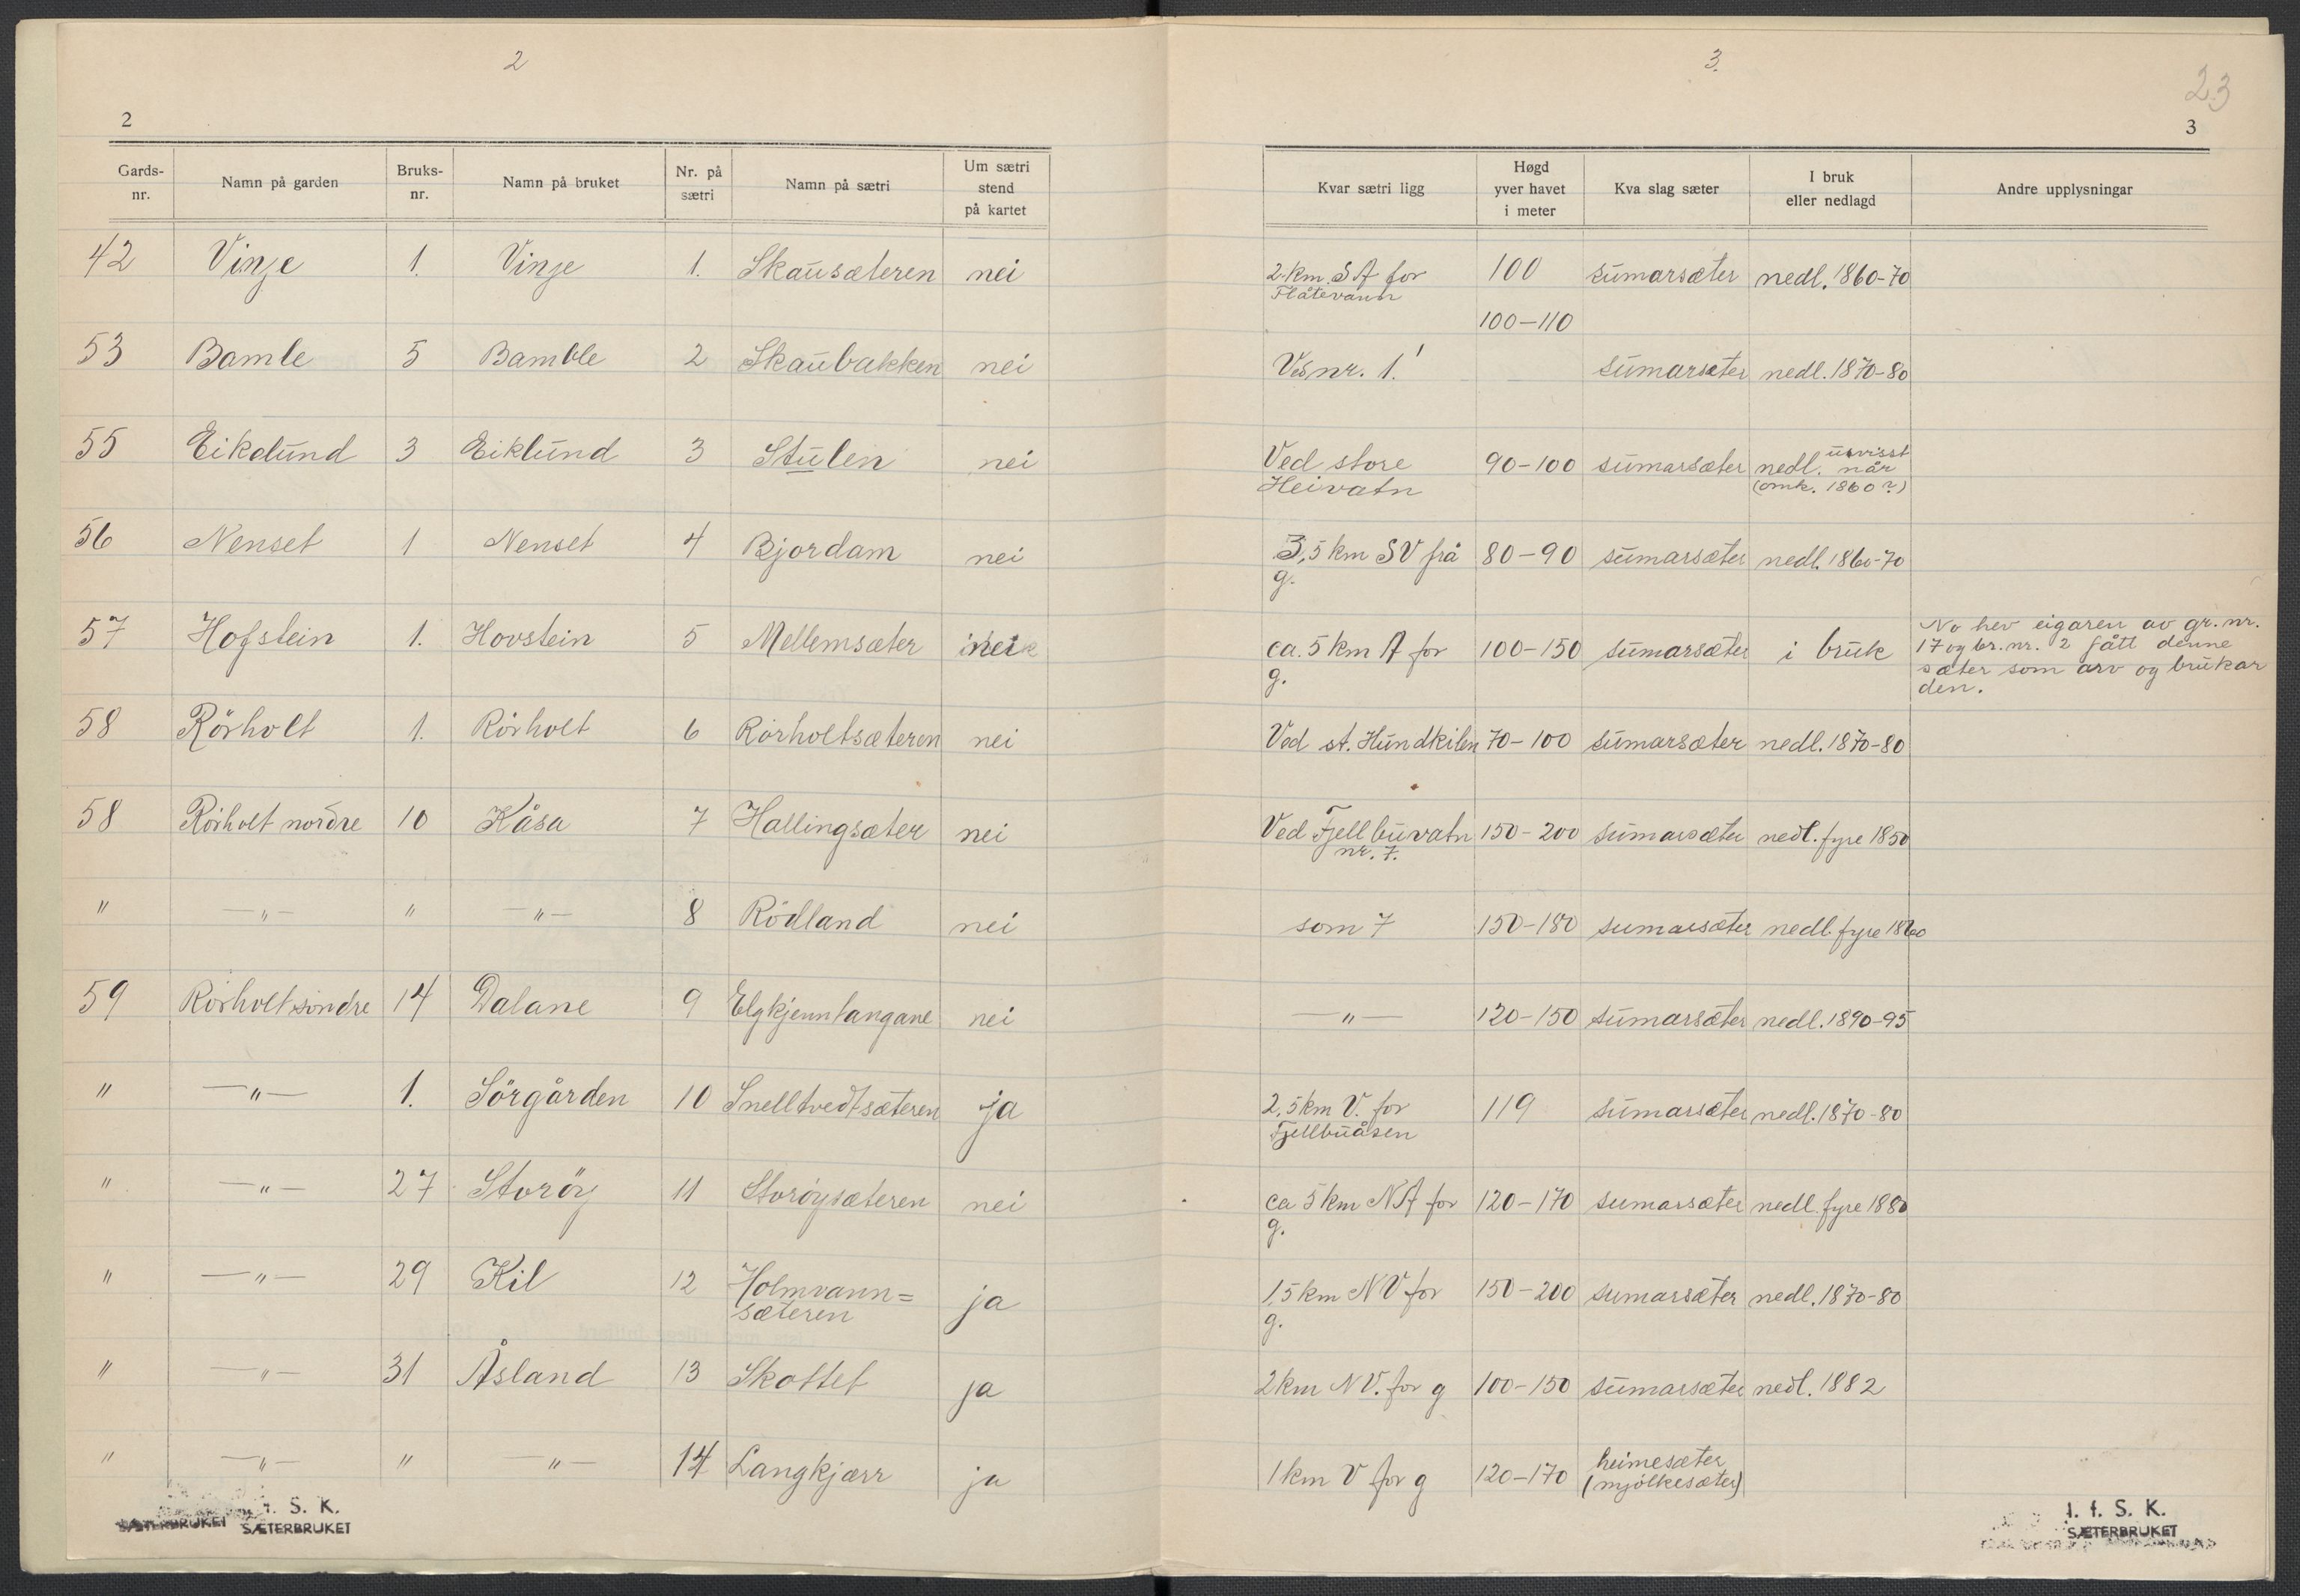 2
2
Gards-nr. Namn på garden Bruks-nr. Namn på bruket Nr. på sætri Namn på sætri Um sætri stend på kartet
42 Vinje 1. Vinje 1. Skausæteren nei
53 Bamle 5 Bamble 2 Skaubakken nei
55 Eikelund 3 Eiklund 3 Stulen nei
56 Nenset 1 Nenset 4 Bjordam nei
57 Hofstein 1. Hovstein 5 Mellemsæter nei
58 Rörholt 1. Rörholt 6 Rörholtsæteren nei
58 Rörholt nordre 10 Kåsa 7 Hallingsæter nei
" —"— " —"— 8 Rödland nei
59 Rörholt söndre 14 Dalane 9 Elgkjenntangane nei
" —"— 1. Sörgården 10 Snelltvedtsæteren ja
" —"— 27 Storöy 11 Storöysæteren nei
" —"— 29 Kil 12 Holmvann=
sæteren ja
" —"— 31 Åsland 13 Skottet ja
" —"— " —"— 14 Langkjærr ja
S. K.
SÆTERBRUKET SÆTERBRUKET
3.
23
3
Kvar sætri ligg Høgd yver havet i meter Kva slag sæter I bruk eller nedlagd Andre upplysningar
2 km. SA for 100 sumarsæter nedl. 1860-70
Flåtevann
100-110
Ved nr. 1. sumarsæter nedl. 1870-80
Ved store 90-100 sumarsæter nedl. uvisst når
Heivatn (omk. 1860?)
3,5 km SV frå 80-90 sumarsæter nedl. 1860-70
g.
No hev eigaren av gr. nr.
ca. 5 km A for 100-150 sumarsæter i bruk 17 og br. nr. 2 fått denne
g. sæter som arv og brukar
den.
Ved st. Hundkilen 70-100 sumarsæter nedl. 1870-80
Ved Fjellbuvatn 150-200 sumarsæter nedl. fyre 1850
nr. 7.
som 7 150-180 sumarsæter nedl. fyre 1860
—"— 120-150 sumarsæter nedl. 1890-95
2,5 km V. for 119 sumarsæter nedl. 1870-80
Fjellbuåsen
ca 5 km NA for 120-170 sumarsæter nedl. fyre 1880
g.
1,5 km NV for 150-200 sumarsæter nedl. 1870-80
g.
2 km NV. for g 100-150 sumarsæter nedl. 1882
1 km V for g 120-170 heimesæter
(mjölkesæter)
I. f. S. K.
SÆTERBRUKET